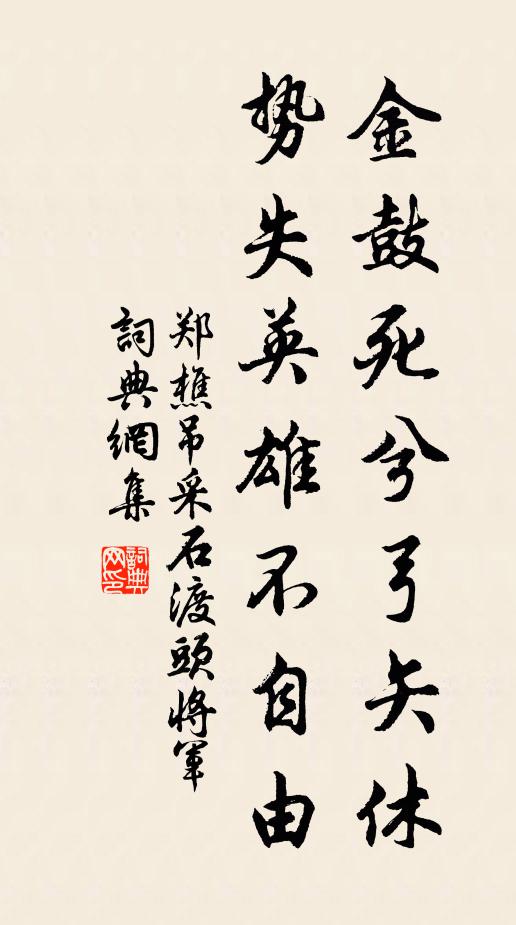 金鼓死兮弓矢休
势失英雄不自由
郑樵吊采石渡頭將軍
詞典網集
詞典网印